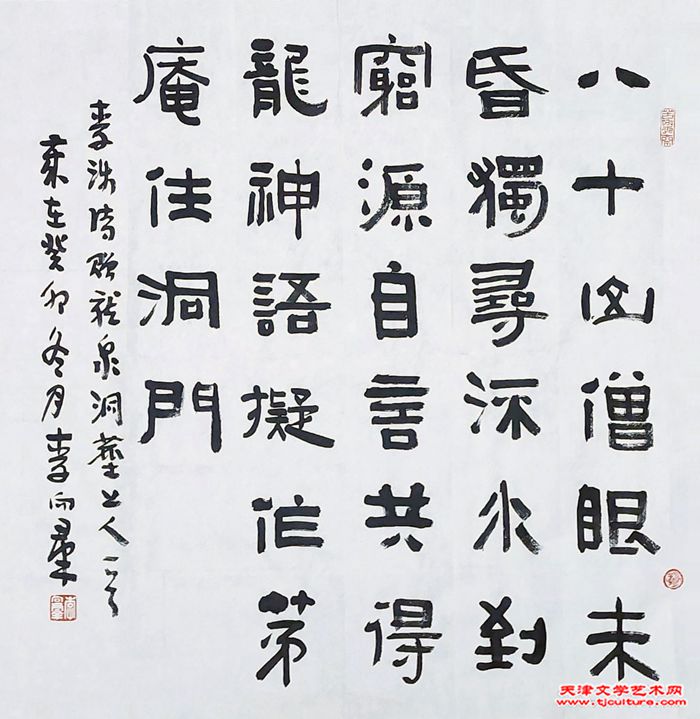 八十山僧眼未
昏獨尋流水到
窮源自言共得
龍神語擬作茅
庵住洞門
李涉詩贈龍泉洞塵上人一首
歲在癸卯冬月李向羣
天津文学艺术网
www.tjculture.com